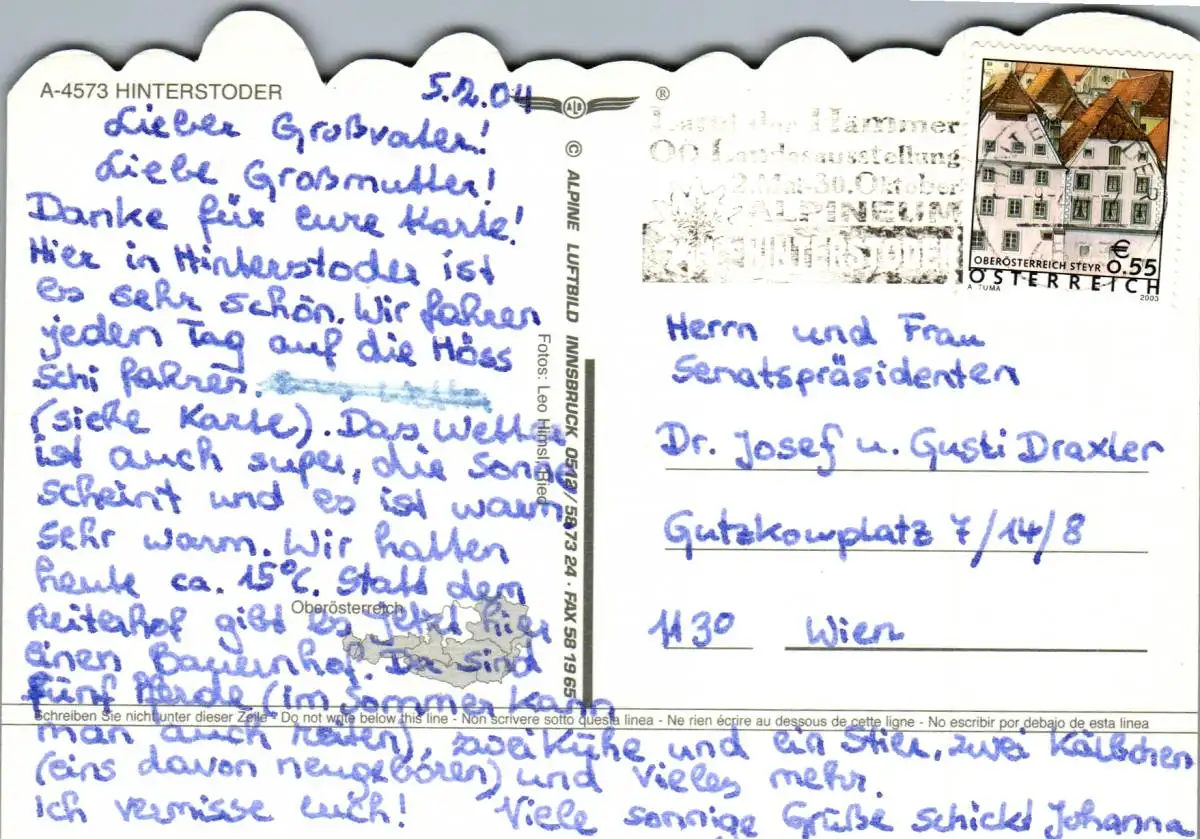 A-4573 HINTERSTODER
5.12.04
Lieber Großvater!
Liebe Großmutter!
Danke für eure Karte!
Hier in Hinterstoder ist
es sehr schön. Wir fahren
jeden Tag auf die Höss
schi fahren.
(siehe Karte). Das Wetter
ist auch super, die Sonne
scheint und es ist warm,
sehr warm. Wir hatten
heute ca. 15°C. Statt dem
Reiterhof gibt es jetzt hier
einen Bauernhof. Da sind
fünf Pferde (im Sommer kann
man auch reiten), zwei Kühe und ein Stier, zwei Kälbchen
(eins davon neugeboren) und vieles mehr.
Ich vermisse euch! Viele sonnige Grüße schickt Johanna
Oberösterreich
ALB
®
© ALPINE LUFTBILD INNSBRUCK 0512/58 73 24 · FAX 58 19 65
Fotos: Leo Himsl, Ried
Land der Hämmer
OÖ Landesausstellung
2. Mai-30. Oktober
ALPINEUM
HINTERSTODER
€
0.55
OBERÖSTERREICH STEYR
ÖSTERREICH
A. TUMA
2003
Herrn und Frau
Senatspräsidenten
Dr. Josef u. Gusti Draxler
Gutzkowplatz 7/14/8
1130 Wien
Schreiben Sie nicht unter dieser Zeile - Do not write below this line - Non scrivere sotto questa linea - Ne rien écrire au dessous de cette ligne - No escribir por debajo de esta linea